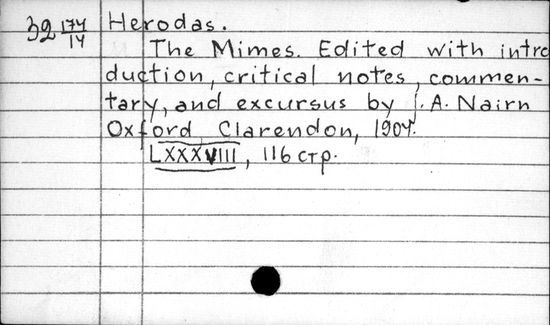 32 174/14 Herodas.
The Mimes. Edited with intro
duction, critical notes, commen-
tary, and excursus by J. A. Nairn
Oxford, Clarendon, 1904.
LXXXVIII, 116 стр.